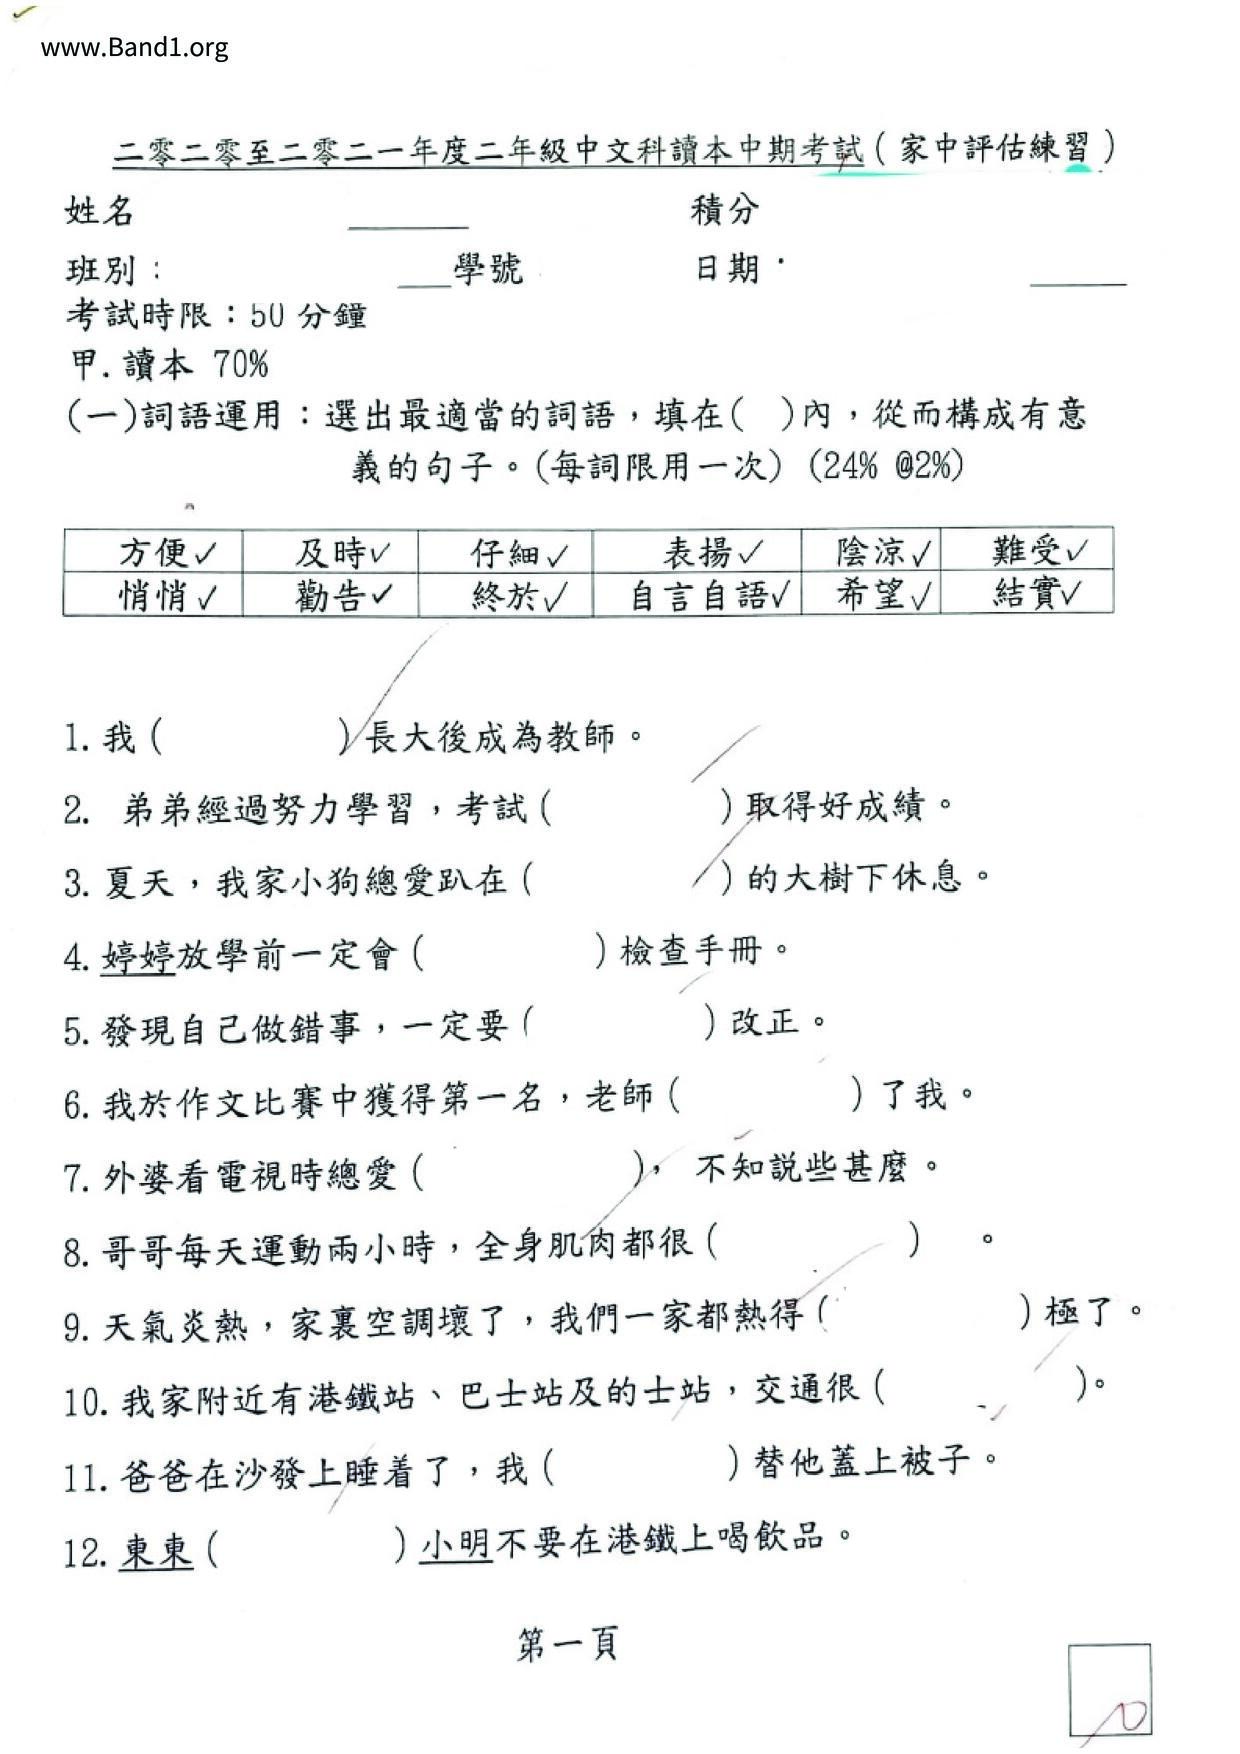 www.Band1.org
二零二零至二零二一年度二年級中文科讀本中期考試（家中評估練習）
姓名 ______ 積分
班別： ___學號 日期· _____
考試時限：50 分鐘
甲. 讀本 70%
(一)詞語運用：選出最適當的詞語，填在( )內，從而構成有意
義的句子。(每詞限用一次) (24% @2%)
方便✓ 及時✓ 仔細✓ 表揚✓ 陰涼✓ 難受✓
悄悄✓ 勸告✓ 終於✓ 自言自語✓ 希望✓ 結實✓
1. 我（ ）長大後成為教師。
2. 弟弟經過努力學習，考試（ ）取得好成績。
3. 夏天，我家小狗總愛趴在（ ）的大樹下休息。
4. 婷婷放學前一定會（ ）檢查手冊。
5. 發現自己做錯事，一定要（ ）改正。
6. 我於作文比賽中獲得第一名，老師（ ）了我。
7. 外婆看電視時總愛（ ）， 不知說些甚麼。
8. 哥哥每天運動兩小時，全身肌肉都很（ ） 。
9. 天氣炎熱，家裏空調壞了，我們一家都熱得（ ）極了。
10. 我家附近有港鐵站、巴士站及的士站，交通很（ ）。
11. 爸爸在沙發上睡着了，我（ ）替他蓋上被子。
12. 東東（ ）小明不要在港鐵上喝飲品。
第一頁